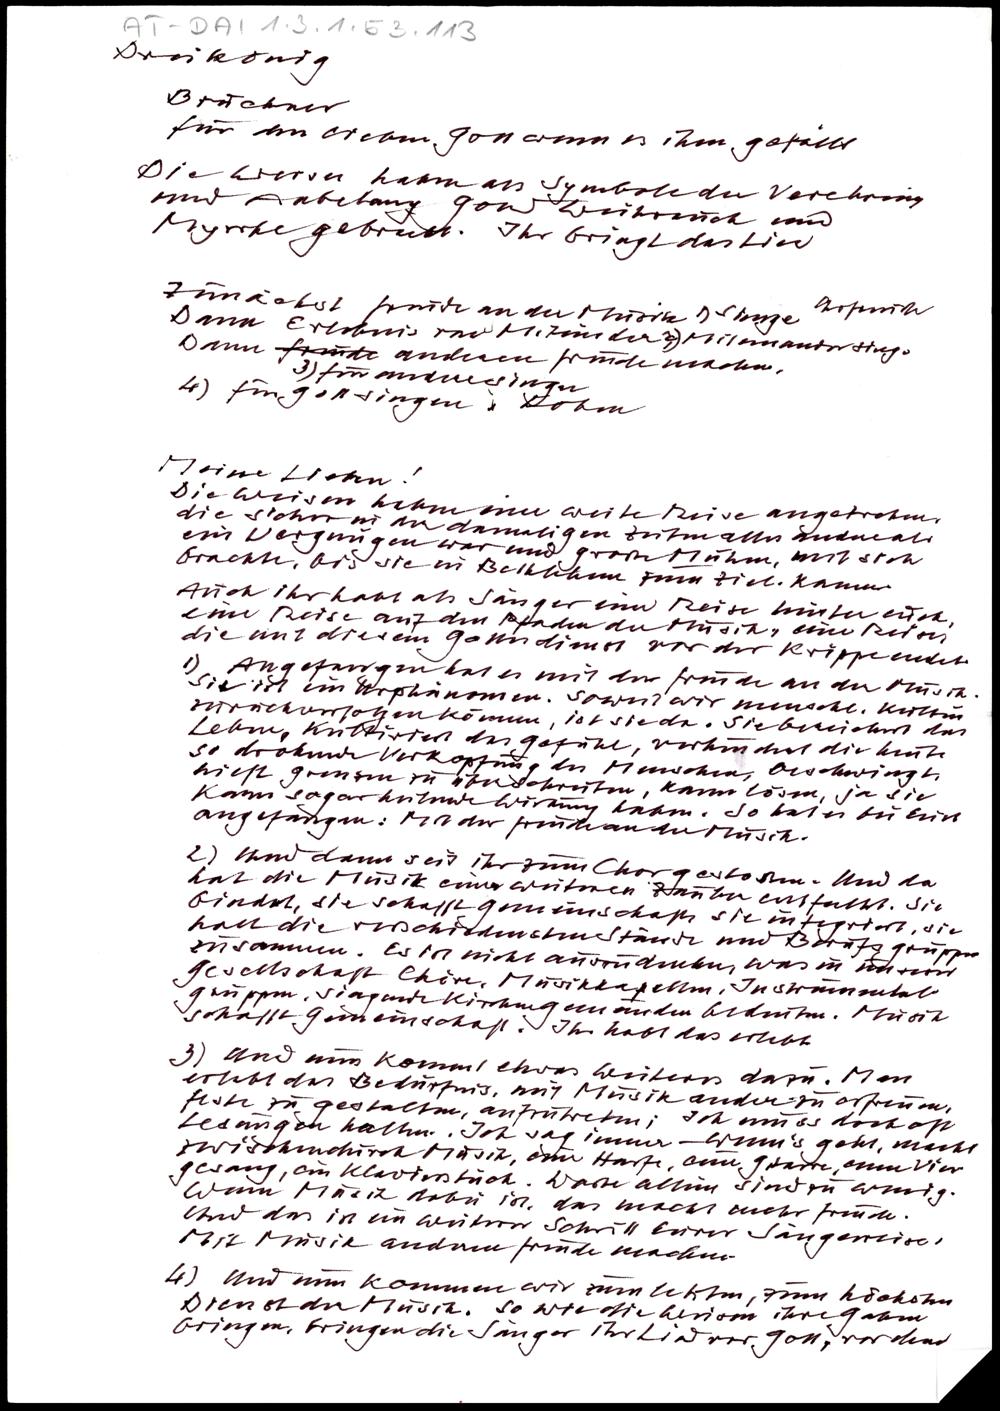 AT-DAI 1.3.1.E3.113
Dreikönig
Bruckner
für den lieben Gott wenn es ihm gefällt
Die Weisen haben als Symbole der Verehrung
und Anbetung Gold Weihrauch und
Myrrhe gebracht. Ihr bringt das Lied
Zunächst Freude an der Musik 1) Singe
Dann Erlebnis von Miteinander 2) Miteinander sing.
Dann Freude anderen Freude machen.
3) für andere singen
4) für Gott singen; Loben
Meine Lieben!
Die Weisen haben eine weite Reise angetreten,
die sicher in der damaligen Zeit alles andere als
ein Vergnügen war und große Mühen, mit sich
brachte, bis sie in Bethlehem zum Ziel kamen
Auch ihr habt als Sänger eine Reise hinter euch,
eine Reise auf den Pfaden der Musik, eine Reise,
die mit diesem Gottesdienst vor der Krippe endet
1) Angefangen hat es mit der Freude an der Musik.
Sie ist ein Urphänomen. Soweit wir menschl. Kultur
zurückverfolgen können, ist sie da. Sie bereichert das
Leben, kultiviert das Gefühl, verhindert die heute
so drohende Verkopfung des Menschen, beschwingt,
hilft Grenzen zu überschreiten, kann lösen, ja sie
kann sogar heilende Wirkung haben. So hat es bei euch
angefangen: Mit der Freude an der Musik.
2) Und dann seid ihr zum Chor gestoßen. Und da
hat die Musik einen weiteren Zauber entfaltet. Sie
bindet, sie schafft Gemeinschaft, sie integriert, sie
hält die verschiedensten Stände und Berufsgruppen
zusammen. Es ist nicht auszudenken, was in unserer
Gesellschaft Chöre, Musikkapellen, Instrumental-
gruppen, singende Kirchengemeinden bedeuten. Musik
schafft Gemeinschaft. Ihr habt das erlebt
3) Und nun kommt etwas Weiteres dazu. Man
erlebt das Bedürfnis, mit Musik andere zu erfreuen,
Feste zu gestalten, aufzutreten; Ich muss doch oft
Lesungen halten. Ich sag immer - wenn's geht, macht
zwischendurch Musik, eine Harfe, eine Gitarre, einen Vier
gesang, ein Klavierstück. Worte allein sind zu wenig.
Wenn Musik dabei ist, das macht mehr Freude.
Und das ist ein weiterer Schritt eurer Sängerreise,
Mit Musik anderen Freude machen
4) Und nun kommen wir zum letzten, zum höchsten
Dienst der Musik. So wie die Weisen ihre Gaben
bringen, bringen die Sänger ihr Lied vor Gott, vor dem